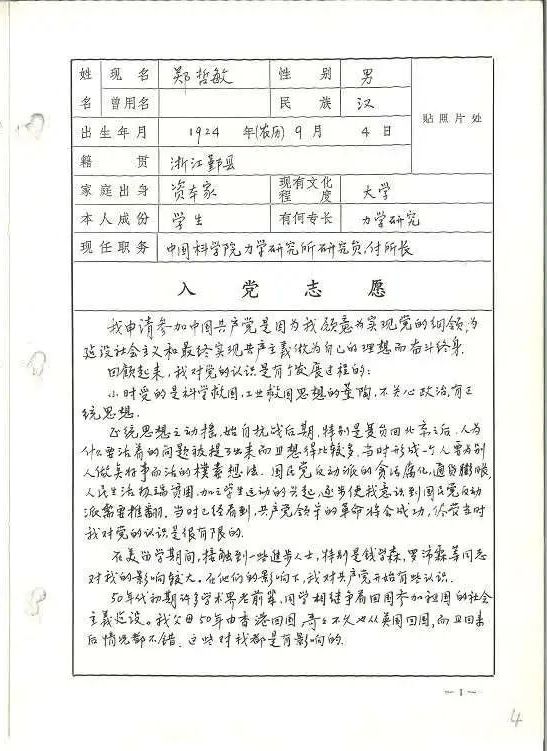 姓 现名 郑哲敏 性别 男
名 曾用名 民族 汉 贴照片处
出生年月 1924 年(农历)9月 4日
籍贯 浙江鄞县
家庭出身 资本家 现有文化程度 大学
本人成份 学生 有何专长 力学研究
现任职务 中国科学院力学研究所研究员,付所长
入党志愿
我申请参加中国共产党是因为我愿意为实现党的纲领,为
建设社会主义和最终实现共产主义做为自己的理想而奋斗终身.
回顾起来,我对党的认识是有个发展过程的:
小时受的是科学救国,工业救国思想的薰陶,不关心政治,有正
统思想.
正统思想之动摇,始自抗战后期,特别是复员回北京之后.人为
什么要活着的问题被提了出来而且想得比较多.当时形成一个人要为别
人做点好事而活的朴素想法.国民党反动派的贪污腐化,通货膨胀,
人民生活极端贫困,加上学生运动的兴起,逐步使我意识到国民党反动
派需要推翻.当时已经看到,共产党领导的革命将会成功,尽管当时
我对党的认识是很有限的.
在美留学期间,接触到一些进步人士,特别是钱学森,罗沛霖等同志
对我的影响较大.在他们的影响下,我对共产党开始有些认识.
50年代初期许多学术界老前辈,同学相继争着回国参加祖国的社会
主义建设。我父母50年由香港回国,哥哥不久也从英国回国,而且回来
后情况都不错.这些对我都是有影响的.
— 1 —
4